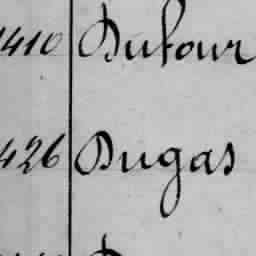 1410 Dufour
426 Dugas